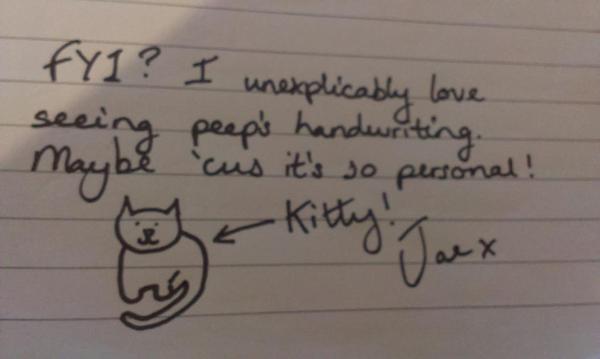 FYI? I unexplicably love
seeing peep's handwriting.
Maybe 'cus it's so personal!
Kitty!
Jae x